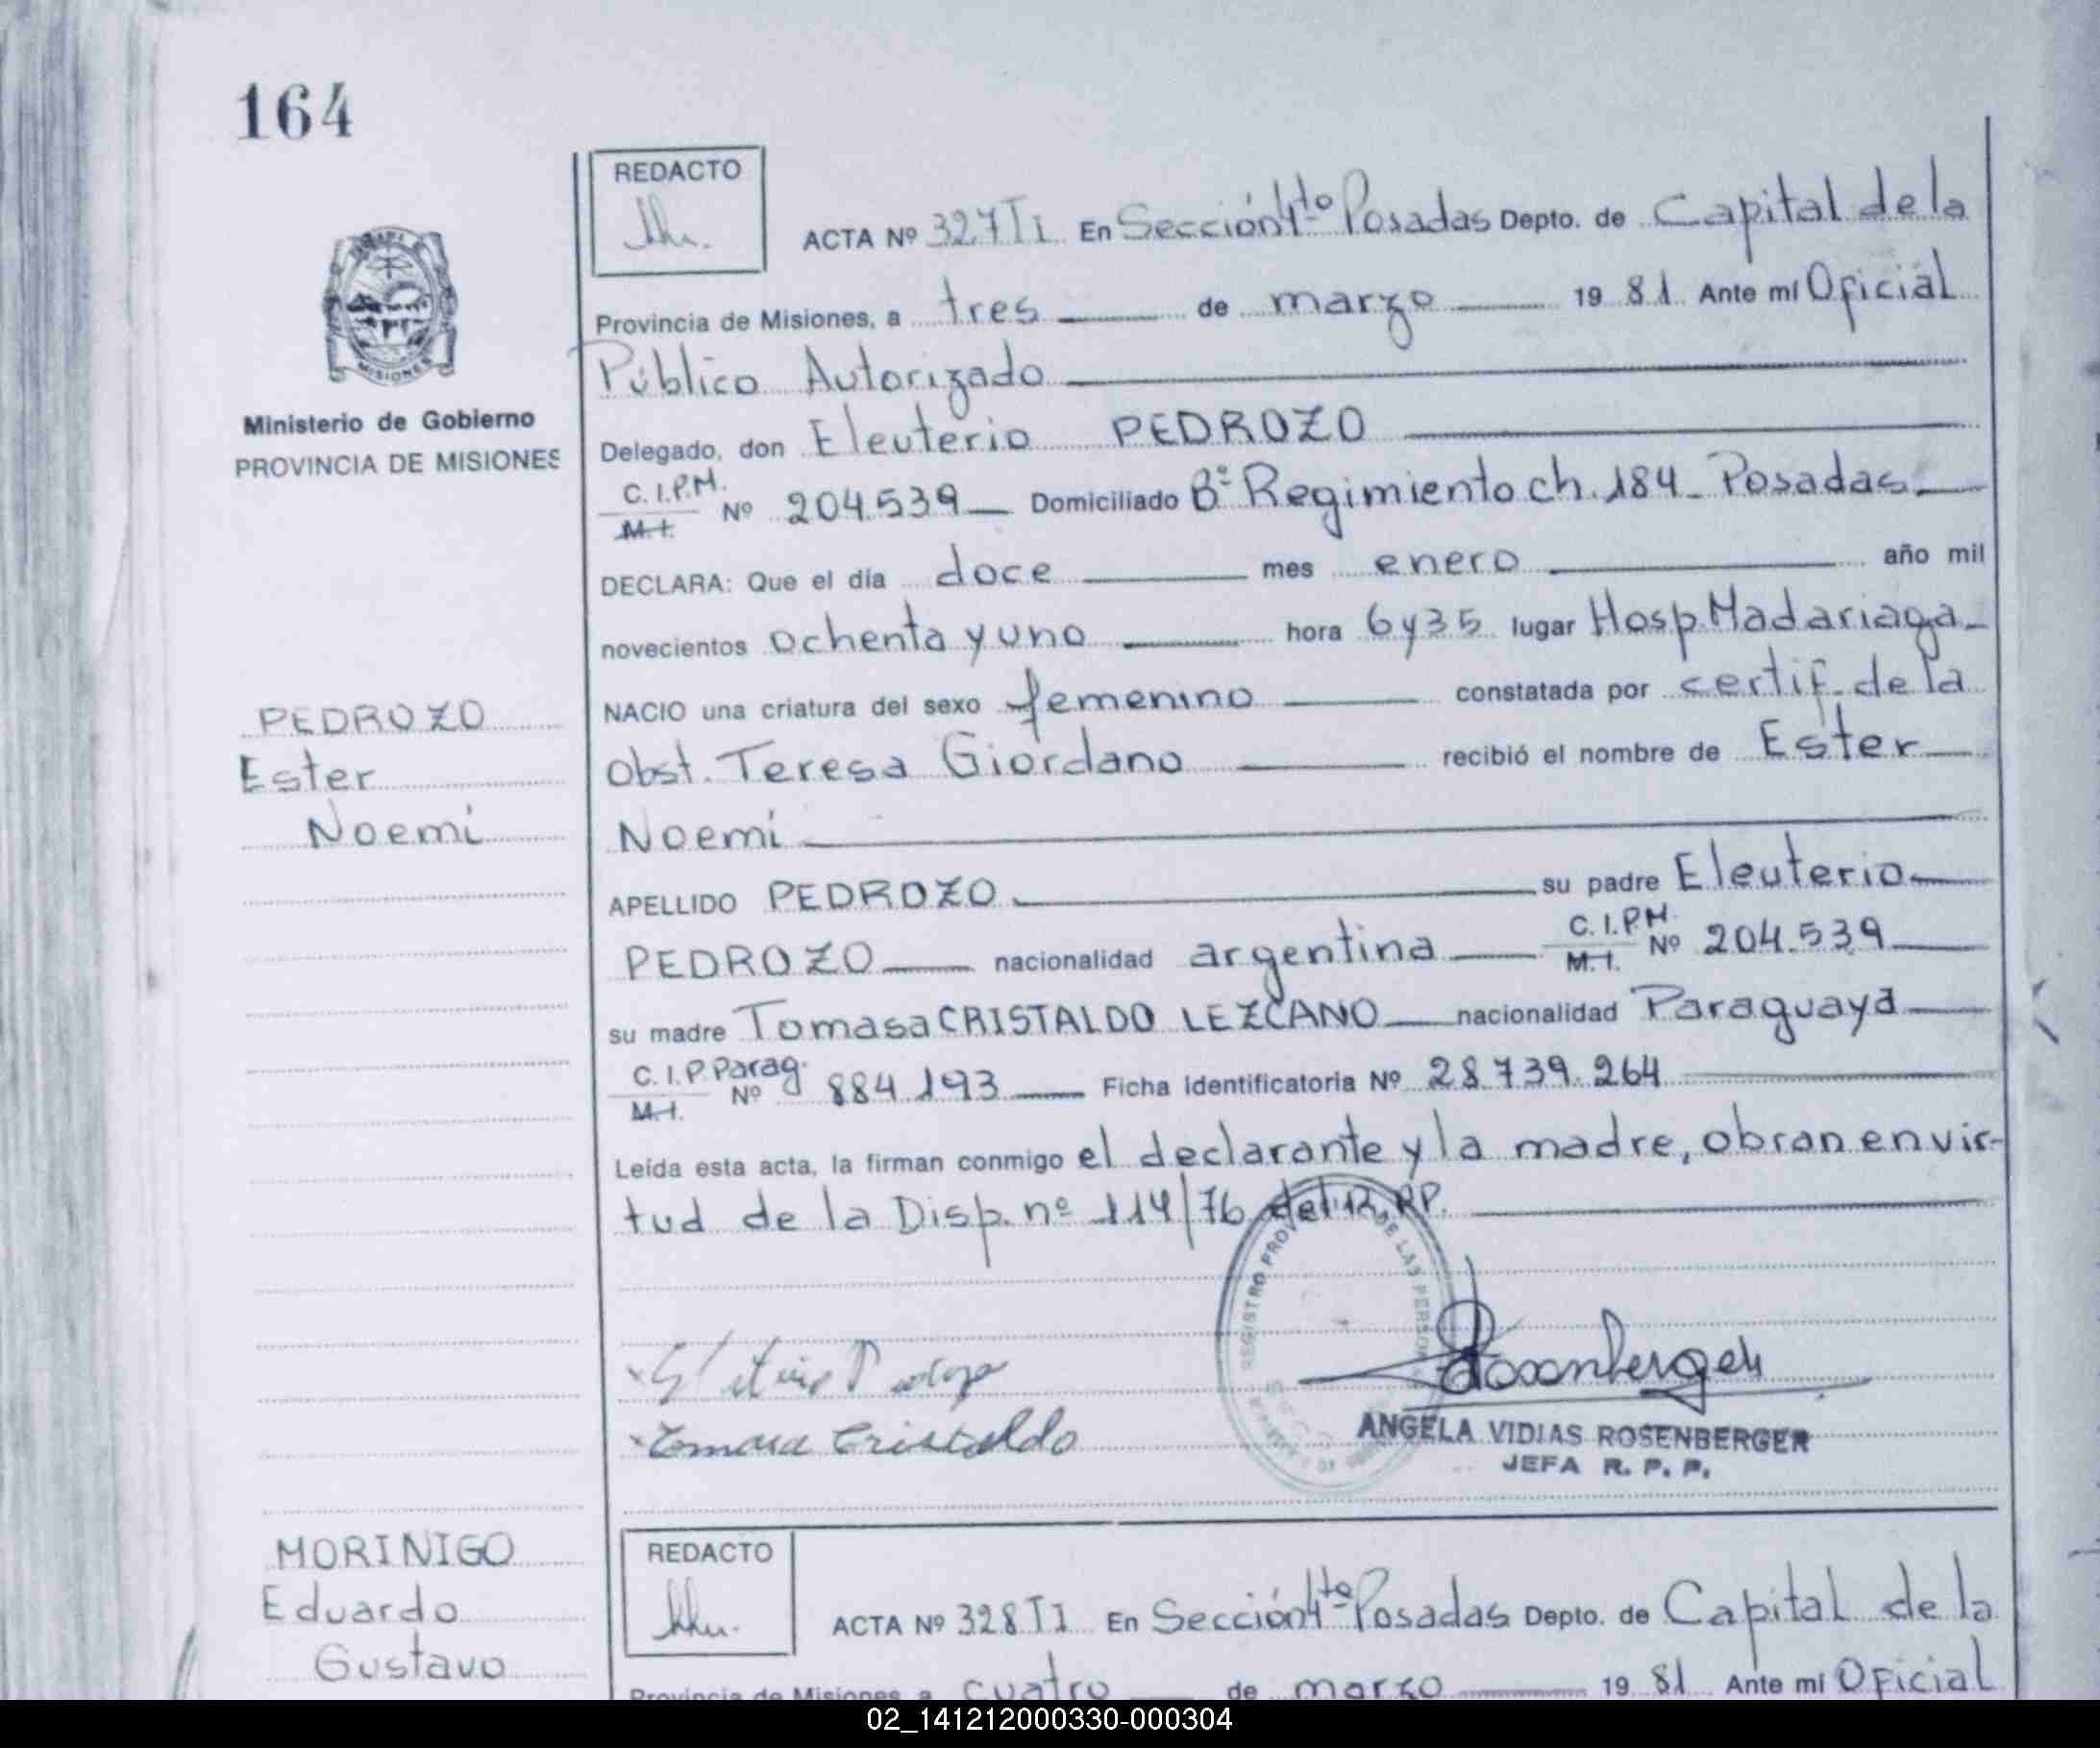 164
REDACTO
ACTA Nº 327 TI En Sección 4to Posadas Depto. de Capital de la
Provincia de Misiones, a tres de marzo 1981 Ante mí Oficial
Público Autorizado
Ministerio de Gobierno
PROVINCIA DE MISIONES
Delegado, don Eleuterio PEDROZO
C.I.P.M.
M.I. Nº 204.539 Domiciliado Bº Regimiento ch. 184 Posadas
DECLARA: Que el día doce mes enero año mil
novecientos ochenta y uno hora 6 y 35 lugar Hosp. Madariaga
NACIO una criatura del sexo femenino constatada por certif. de la
Obst. Teresa Giordano recibió el nombre de Ester
Noemí
PEDROZO
Ester
Noemí
APELLIDO PEDROZO su padre Eleuterio
PEDROZO nacionalidad argentina C.I.P.M. M.I. Nº 204.539
su madre Tomasa CRISTALDO LEZCANO nacionalidad Paraguaya
C.I.P. Parag.
M.I. Nº 884.193 Ficha identificatoria Nº 28.739.264
Leída esta acta, la firman conmigo el declarante y la madre, obran en vir-
tud de la Disp. nº 114/76 del R.P.
REGISTRO PROV DE LAS PERSONAS
Rosenberger
Tomasa Cristaldo
ANGELA VIDIAS ROSENBERGER
JEFA R. P. P.
MORINIGO
Eduardo
Gustavo
REDACTO
ACTA Nº 328 TI En Sección 4to Posadas Depto. de Capital de la
Provincia de Misiones a cuatro de marzo 1981 Ante mí Oficial
02_141212000330-000304